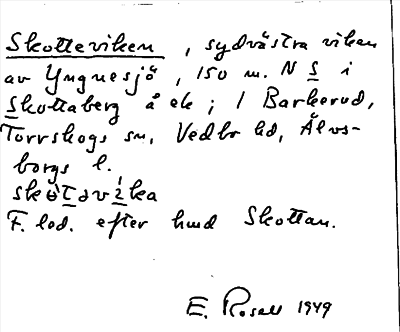 Skotteviken, sydvästra viken
av Yngnesjö, 150 m. N S i
Skottaberg å ek; 1 Barkerud,
Torrskogs sn, Vedbo hd, Älvs-
borgs l.
F. lod. efter hmd Skottan.
E. Rosell 1949